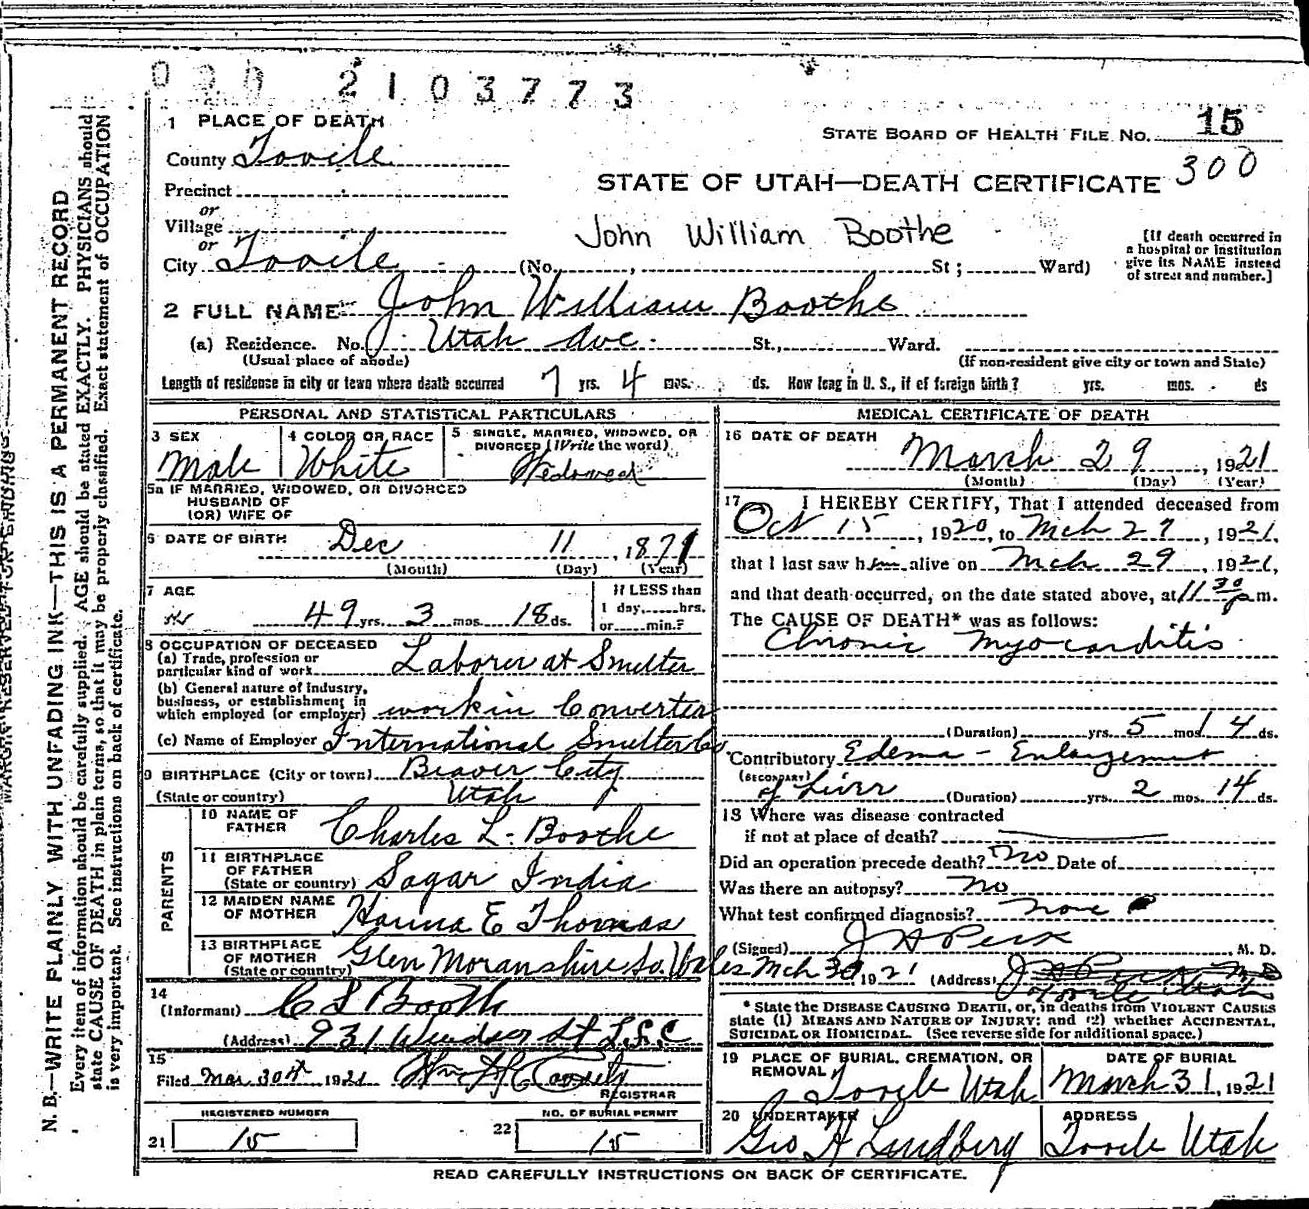 2103773
1 PLACE OF DEATH
STATE BOARD OF HEALTH FILE NO. 15
300
County Tooele
Precinct
STATE OF UTAH—DEATH CERTIFICATE
or
Village
or
John William Boothe
[If death occurred in a hospital or institution give its NAME instead of street and number.]
City Tooele (No. , St; Ward)
2 FULL NAME John William Boothe
(a) Residence. No. Utah Ave. St., Ward.
(Usual place of abode) (If non-resident give city or town and State)
Length of residence in city or town where death occurred 7 yrs. 4 mos. ds. How long in U. S., if of foreign birth? yrs. mos. ds
PERSONAL AND STATISTICAL PARTICULARS
3 SEX Male
4 COLOR OR RACE White
5 SINGLE, MARRIED, WIDOWED, OR DIVORCED (Write the word) Widowed
5a IF MARRIED, WIDOWED, OR DIVORCED
HUSBAND OF
(OR) WIFE OF
6 DATE OF BIRTH Dec 11, 1871
(Month) (Day) (Year)
7 AGE
49 yrs. 3 mos. 18 ds.
If LESS than
1 day, hrs.
or min.?
8 OCCUPATION OF DECEASED
(a) Trade, profession or
particular kind of work Laborer at Smelter
(b) General nature of industry,
business, or establishment in
which employed (or employer) work in Converter
(c) Name of Employer International Smelter Co
9 BIRTHPLACE (City or town) Beaver City
(State or country) Utah
PARENTS
10 NAME OF FATHER Charles L. Boothe
11 BIRTHPLACE OF FATHER (State or country) Sagar India
12 MAIDEN NAME OF MOTHER Hanna E Thomas
13 BIRTHPLACE OF MOTHER (State or country) Glen Moranshire So. Wales
14
(Informant) C L Booth
(Address) 931 Windsor St S.L.C
15
Filed Mar 30th 1921 Wm H
REGISTRAR
REGISTERED NUMBER
21 15
NO. OF BURIAL PERMIT
22 15
MEDICAL CERTIFICATE OF DEATH
16 DATE OF DEATH
March 29, 1921
(Month) (Day) (Year)
17 I HEREBY CERTIFY, That I attended deceased from
Oct 15, 1920, to Mch 27, 1921,
that I last saw him alive on Mch 29, 1921,
and that death occurred, on the date stated above, at 11 30 p m.
The CAUSE OF DEATH* was as follows:
Chronic Myocarditis
(Duration) yrs. 5 mos 14 ds.
Contributory Edema - Enlargement
(SECONDARY)
of Liver (Duration) yrs. 2 mos. 14 ds.
18 Where was disease contracted
if not at place of death?
Did an operation precede death? No Date of
Was there an autopsy? No
What test confirmed diagnosis? None
(Signed) J H Peck M. D.
Mch 30, 1921 (Address) Tooele Utah
* State the DISEASE CAUSING DEATH, or, in deaths from VIOLENT CAUSES
state (1) MEANS AND NATURE OF INJURY; and (2) whether ACCIDENTAL,
SUICIDAL OR HOMICIDAL. (See reverse side for additional space.)
19 PLACE OF BURIAL, CREMATION, OR REMOVAL Tooele Utah
DATE OF BURIAL March 31, 1921
20 UNDERTAKER Geo H Lundberg
ADDRESS Tooele Utah
READ CAREFULLY INSTRUCTIONS ON BACK OF CERTIFICATE.
MARGIN RESERVED FOR BINDING
N. B.—WRITE PLAINLY WITH UNFADING INK—THIS IS A PERMANENT RECORD
Every item of information should be carefully supplied. AGE should be stated EXACTLY. PHYSICIANS should
state CAUSE OF DEATH in plain terms, so that it may be properly classified. Exact statement of OCCUPATION
is very important. See instructions on back of certificate.